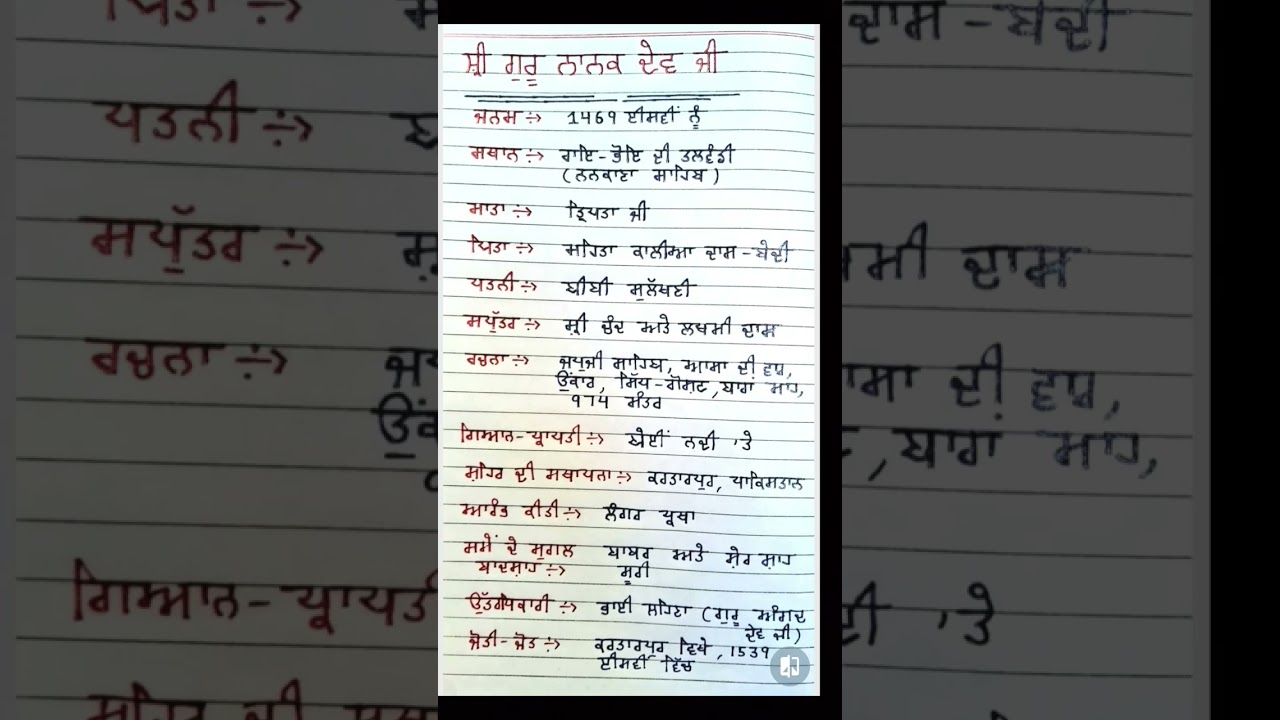 ਸ਼੍ਰੀ ਗੁਰੂ ਨਾਨਕ ਦੇਵ ਜੀ
ਜਨਮ :-> 1469 ਈਸਵੀਂ ਨੂੰ
ਸਥਾਨ :-> ਰਾਇ-ਭੋਇ ਦੀ ਤਲਵੰਡੀ
(ਨਨਕਾਣਾ ਸਾਹਿਬ)
ਮਾਤਾ :-> ਤ੍ਰਿਪਤਾ ਜੀ
ਪਿਤਾ :-> ਮਹਿਤਾ ਕਾਲੀਆ ਦਾਸ-ਬੇਦੀ
ਪਤਨੀ :-> ਬੀਬੀ ਸੁਲੱਖਣੀ
ਸਪੁੱਤਰ :-> ਸ਼੍ਰੀ ਚੰਦ ਅਤੇ ਲਖਮੀ ਦਾਸ
ਰਚਨਾ :-> ਜਪੁਜੀ ਸਾਹਿਬ, ਆਸਾ ਦੀ ਵਾਰ,
ਉਂਕਾਰ, ਸਿੱਧ-ਗੋਸ਼ਟ, ਬਾਰਾਂ ਮਾਹ,
974 ਸ਼ਬਦ
ਗਿਆਨ-ਪ੍ਰਾਪਤੀ :-> ਬੇਈਂ ਨਦੀ 'ਤੇ
ਸ਼ਹਿਰ ਦੀ ਸਥਾਪਨਾ :-> ਕਰਤਾਰਪੁਰ, ਪਾਕਿਸਤਾਨ
ਆਰੰਭ ਕੀਤੀ :-> ਲੰਗਰ ਪ੍ਰਥਾ
ਸਮੇਂ ਦੇ ਮੁਗਲ ਬਾਬਰ ਅਤੇ ਸ਼ੇਰ ਸ਼ਾਹ
ਬਾਦਸ਼ਾਹ :-> ਸੂਰੀ
ਉੱਤਰਾਧਿਕਾਰੀ :-> ਭਾਈ ਲਹਿਣਾ (ਗੁਰੂ ਅੰਗਦ
ਦੇਵ ਜੀ)
ਜੋਤੀ-ਜੋਤ :-> ਕਰਤਾਰਪੁਰ ਵਿਖੇ, 1539
ਈਸਵੀਂ ਵਿੱਚ